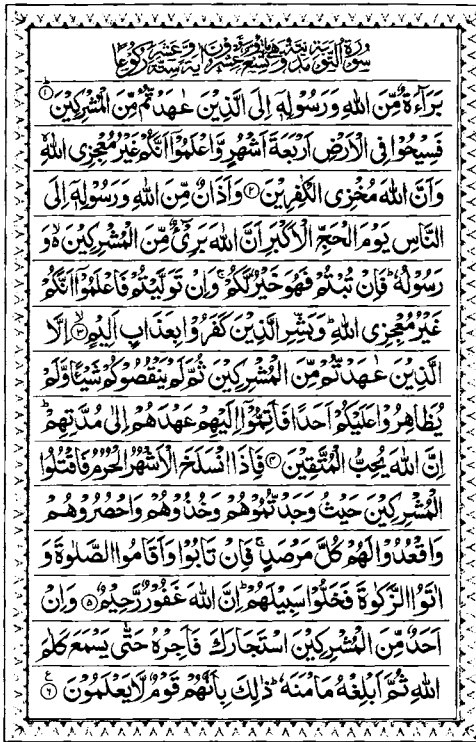 سورة التوبة مدنية وهي مائة وتسع وعشرون اية وستة عشر ركوعا
بَرَآءَةٌ مِّنَ اللهِ وَرَسُولِهٖٓ اِلَى الَّذِينَ عٰهَدْتُّمْ مِّنَ الْمُشْرِكِينَ ۱
فَسِيْحُوْا فِى الْاَرْضِ اَرْبَعَةَ اَشْهُرٍ وَّاعْلَمُوْٓا اَنَّكُمْ غَيْرُ مُعْجِزِى اللهِ
وَاَنَّ اللهَ مُخْزِى الْكٰفِرِيْنَ ۲ وَاَذَانٌ مِّنَ اللهِ وَرَسُوْلِهٖٓ اِلَى
النَّاسِ يَوْمَ الْحَجِّ الْاَكْبَرِ اَنَّ اللهَ بَرِىْٓءٌ مِّنَ الْمُشْرِكِيْنَ ەۙ وَ
رَسُوْلُهٗ فَاِنْ تُبْتُمْ فَهُوَ خَيْرٌ لَّكُمْ وَاِنْ تَوَلَّيْتُمْ فَاعْلَمُوْٓا اَنَّكُمْ
غَيْرُ مُعْجِزِى اللهِ وَبَشِّرِ الَّذِيْنَ كَفَرُوْا بِعَذَابٍ اَلِيْمٍ ۳ اِلَّا
الَّذِيْنَ عٰهَدْتُّمْ مِّنَ الْمُشْرِكِيْنَ ثُمَّ لَمْ يَنْقُصُوْكُمْ شَيْـًٔا وَّلَمْ
يُظَاهِرُوْا عَلَيْكُمْ اَحَدًا فَاَتِمُّوْٓا اِلَيْهِمْ عَهْدَهُمْ اِلٰى مُدَّتِهِمْ
اِنَّ اللهَ يُحِبُّ الْمُتَّقِيْنَ ۴ فَاِذَا انْسَلَخَ الْاَشْهُرُ الْحُرُمُ فَاقْتُلُوا
الْمُشْرِكِيْنَ حَيْثُ وَجَدْتُّمُوْهُمْ وَخُذُوْهُمْ وَاحْصُرُوْهُمْ
وَاقْعُدُوْا لَهُمْ كُلَّ مَرْصَدٍ فَاِنْ تَابُوْا وَاَقَامُوا الصَّلٰوةَ وَ
اٰتَوُا الزَّكٰوةَ فَخَلُّوْا سَبِيْلَهُمْ اِنَّ اللهَ غَفُوْرٌ رَّحِيْمٌ ۵ وَاِنْ
اَحَدٌ مِّنَ الْمُشْرِكِيْنَ اسْتَجَارَكَ فَاَجِرْهُ حَتّٰى يَسْمَعَ كَلٰمَ
اللهِ ثُمَّ اَبْلِغْهُ مَاْمَنَهٗ ذٰلِكَ بِاَنَّهُمْ قَوْمٌ لَّا يَعْلَمُوْنَ ۶ ع